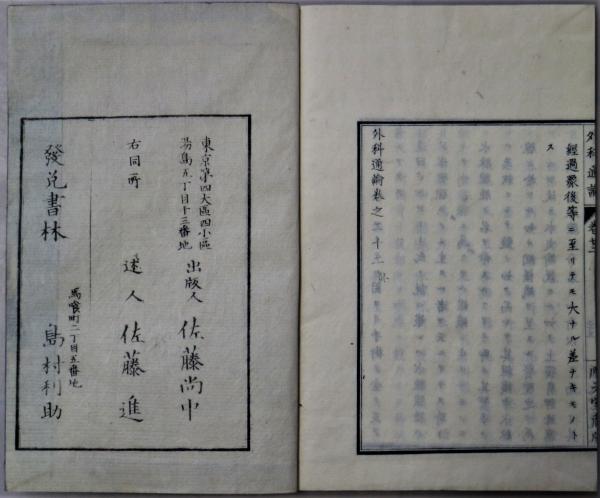 外科通論
卷廿二
經過豫後等ニ至リテモ大ナル差ナキモノトス
外科通論卷之二十二
東京第四大區四小區
湯島五丁目十三番地
出版人 佐藤尚中
右同所
述人 佐藤進
馬喰町二丁目五番地
發兌書林 島村利助